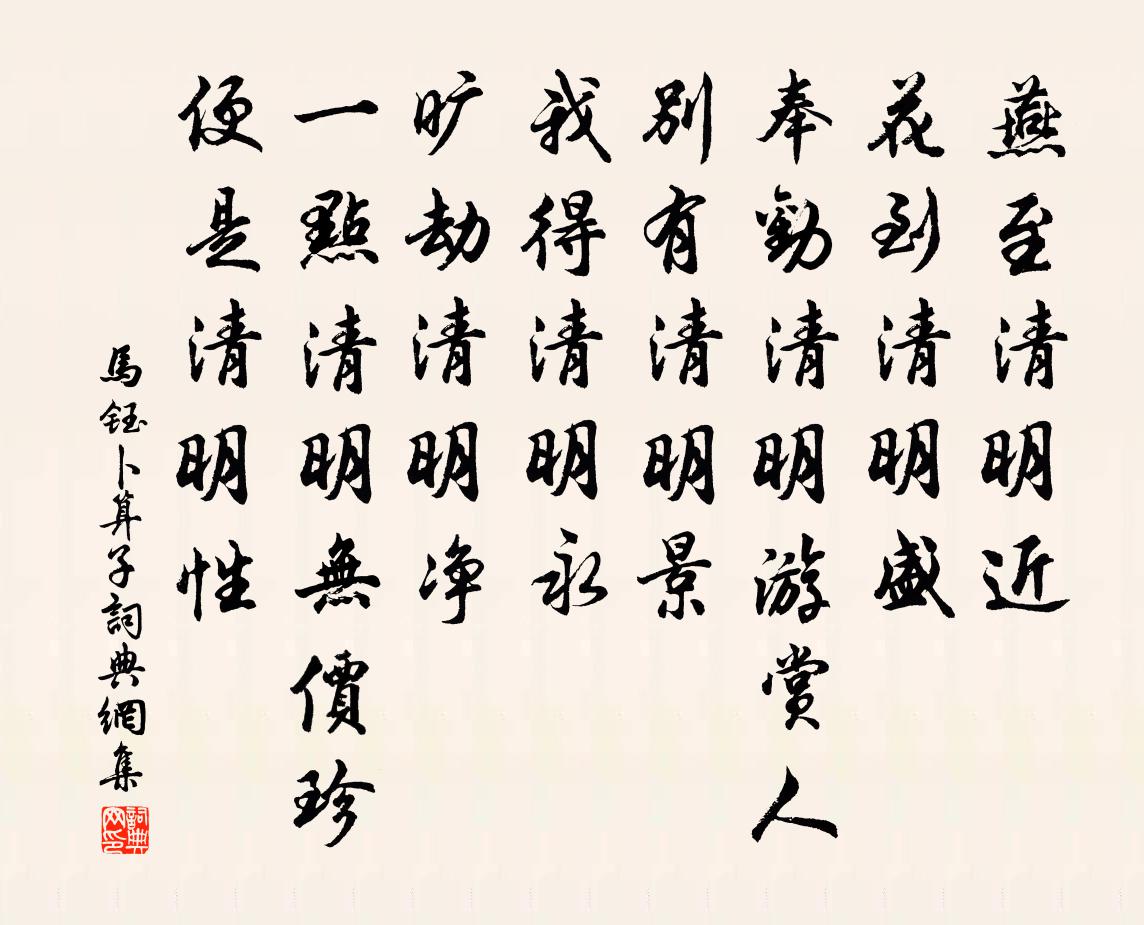 燕至清明近
花到清明盛
奉勸清明游賞人
別有清明景
我得清明永
旷劫清明净
一點清明無價珍
便是清明性
馬鈺卜算子詞典網集
詞典网印